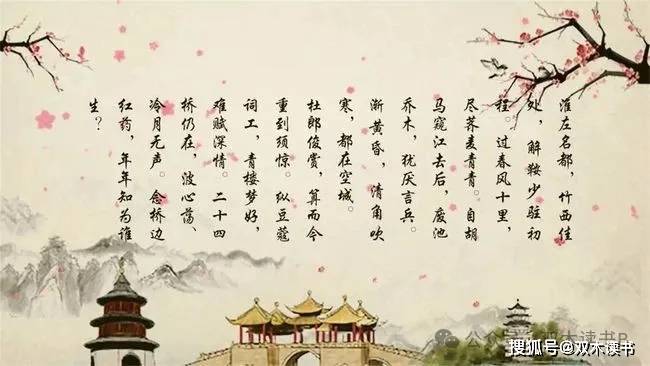 淮左名都，竹西佳
处，解鞍少驻初
程。过春风十里，
尽荠麦青青。自胡
马窥江去后，废池
乔木，犹厌言兵。
渐黄昏，清角吹
寒，都在空城。
杜郎俊赏，算而今
重到须惊。纵豆蔻
词工，青楼梦好，
难赋深情。二十四
桥仍在，波心荡、
冷月无声。念桥边
红药，年年知为谁
生？
搜狐号@双木读书